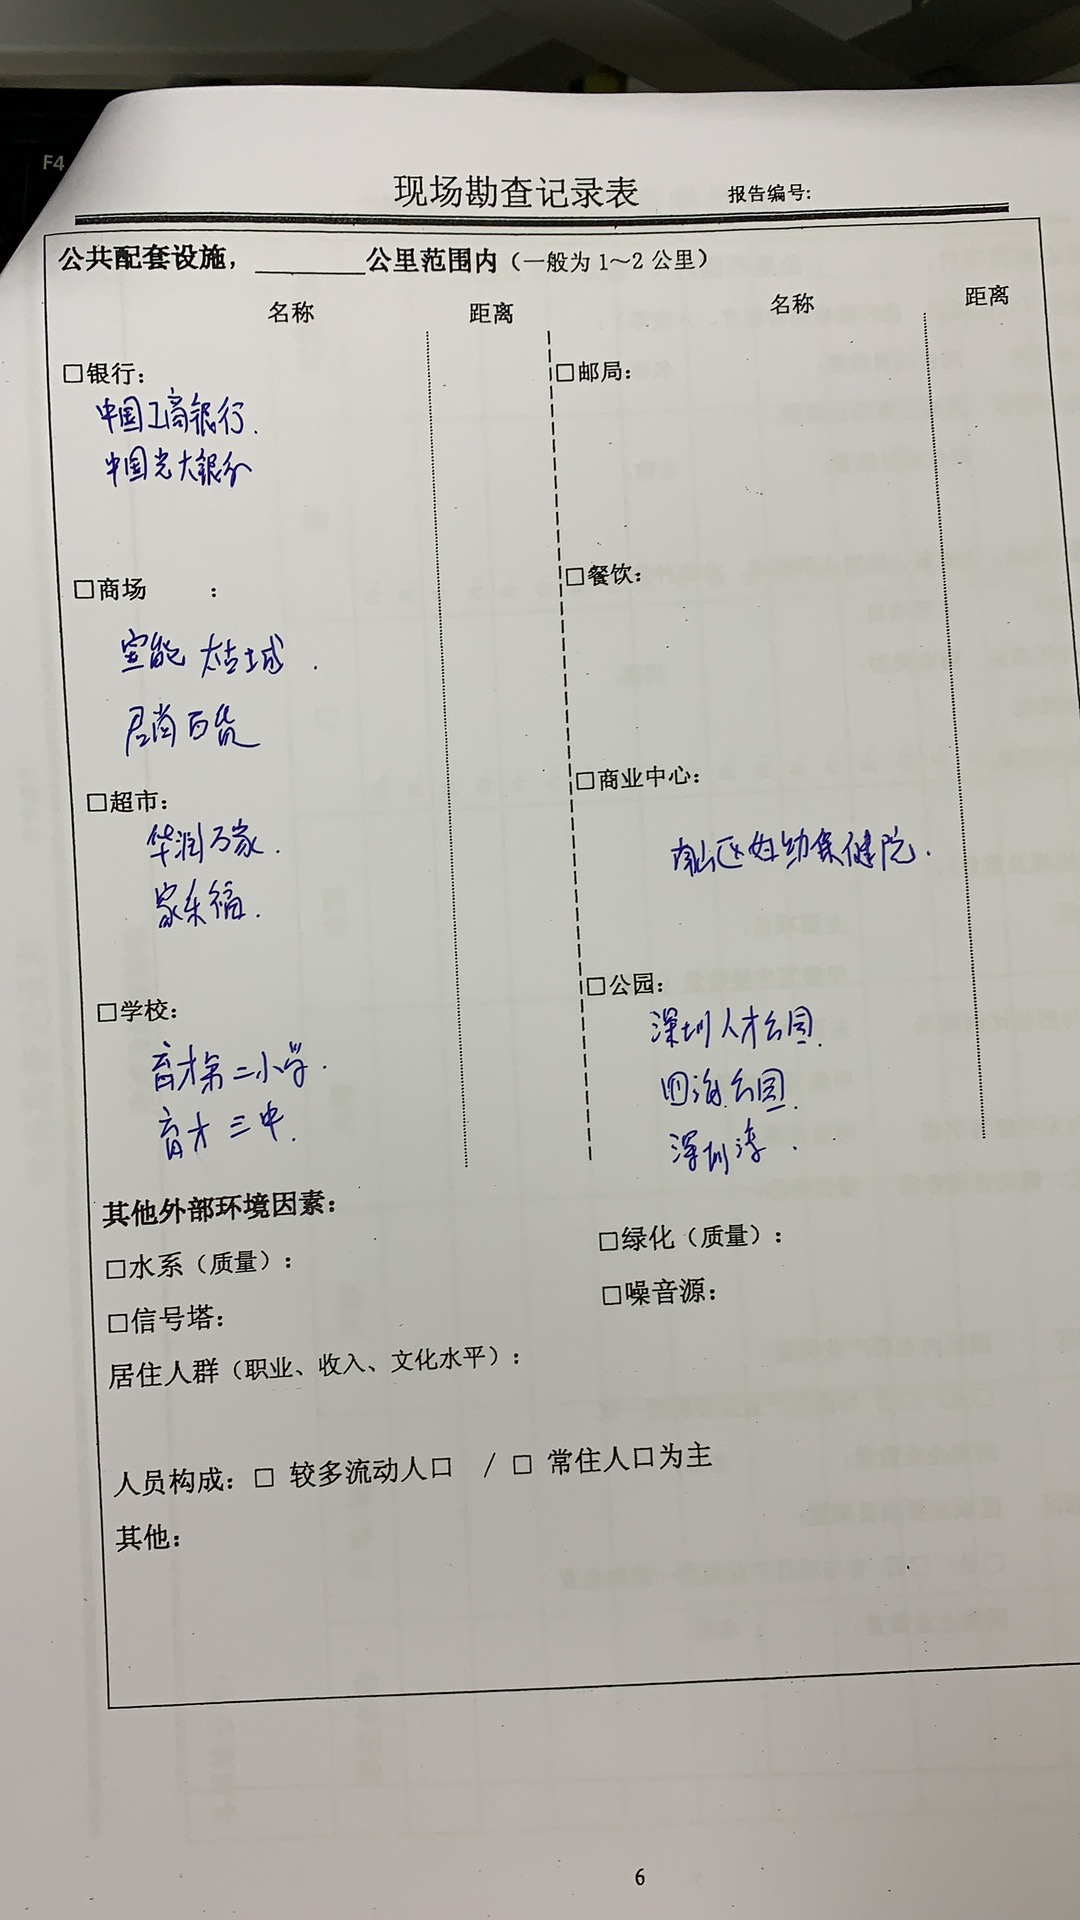 F4
现场勘查记录表 报告编号:
公共配套设施，________公里范围内（一般为1～2公里）
名称 距离 名称 距离
□银行：
中国工商银行.
中国光大银行
□邮局：
□商场 ：
宝能 太古城.
君尚百货
□餐饮：
□超市：
华润万家.
家乐福.
□商业中心：
南山区妇幼保健院.
□学校：
育才第二小学.
育才三中.
□公园：
深圳人才公园.
四海公园.
深圳湾.
其他外部环境因素：
□水系（质量）： □绿化（质量）：
□信号塔： □噪音源：
居住人群（职业、收入、文化水平）：
人员构成：□ 较多流动人口 / □ 常住人口为主
其他：
6